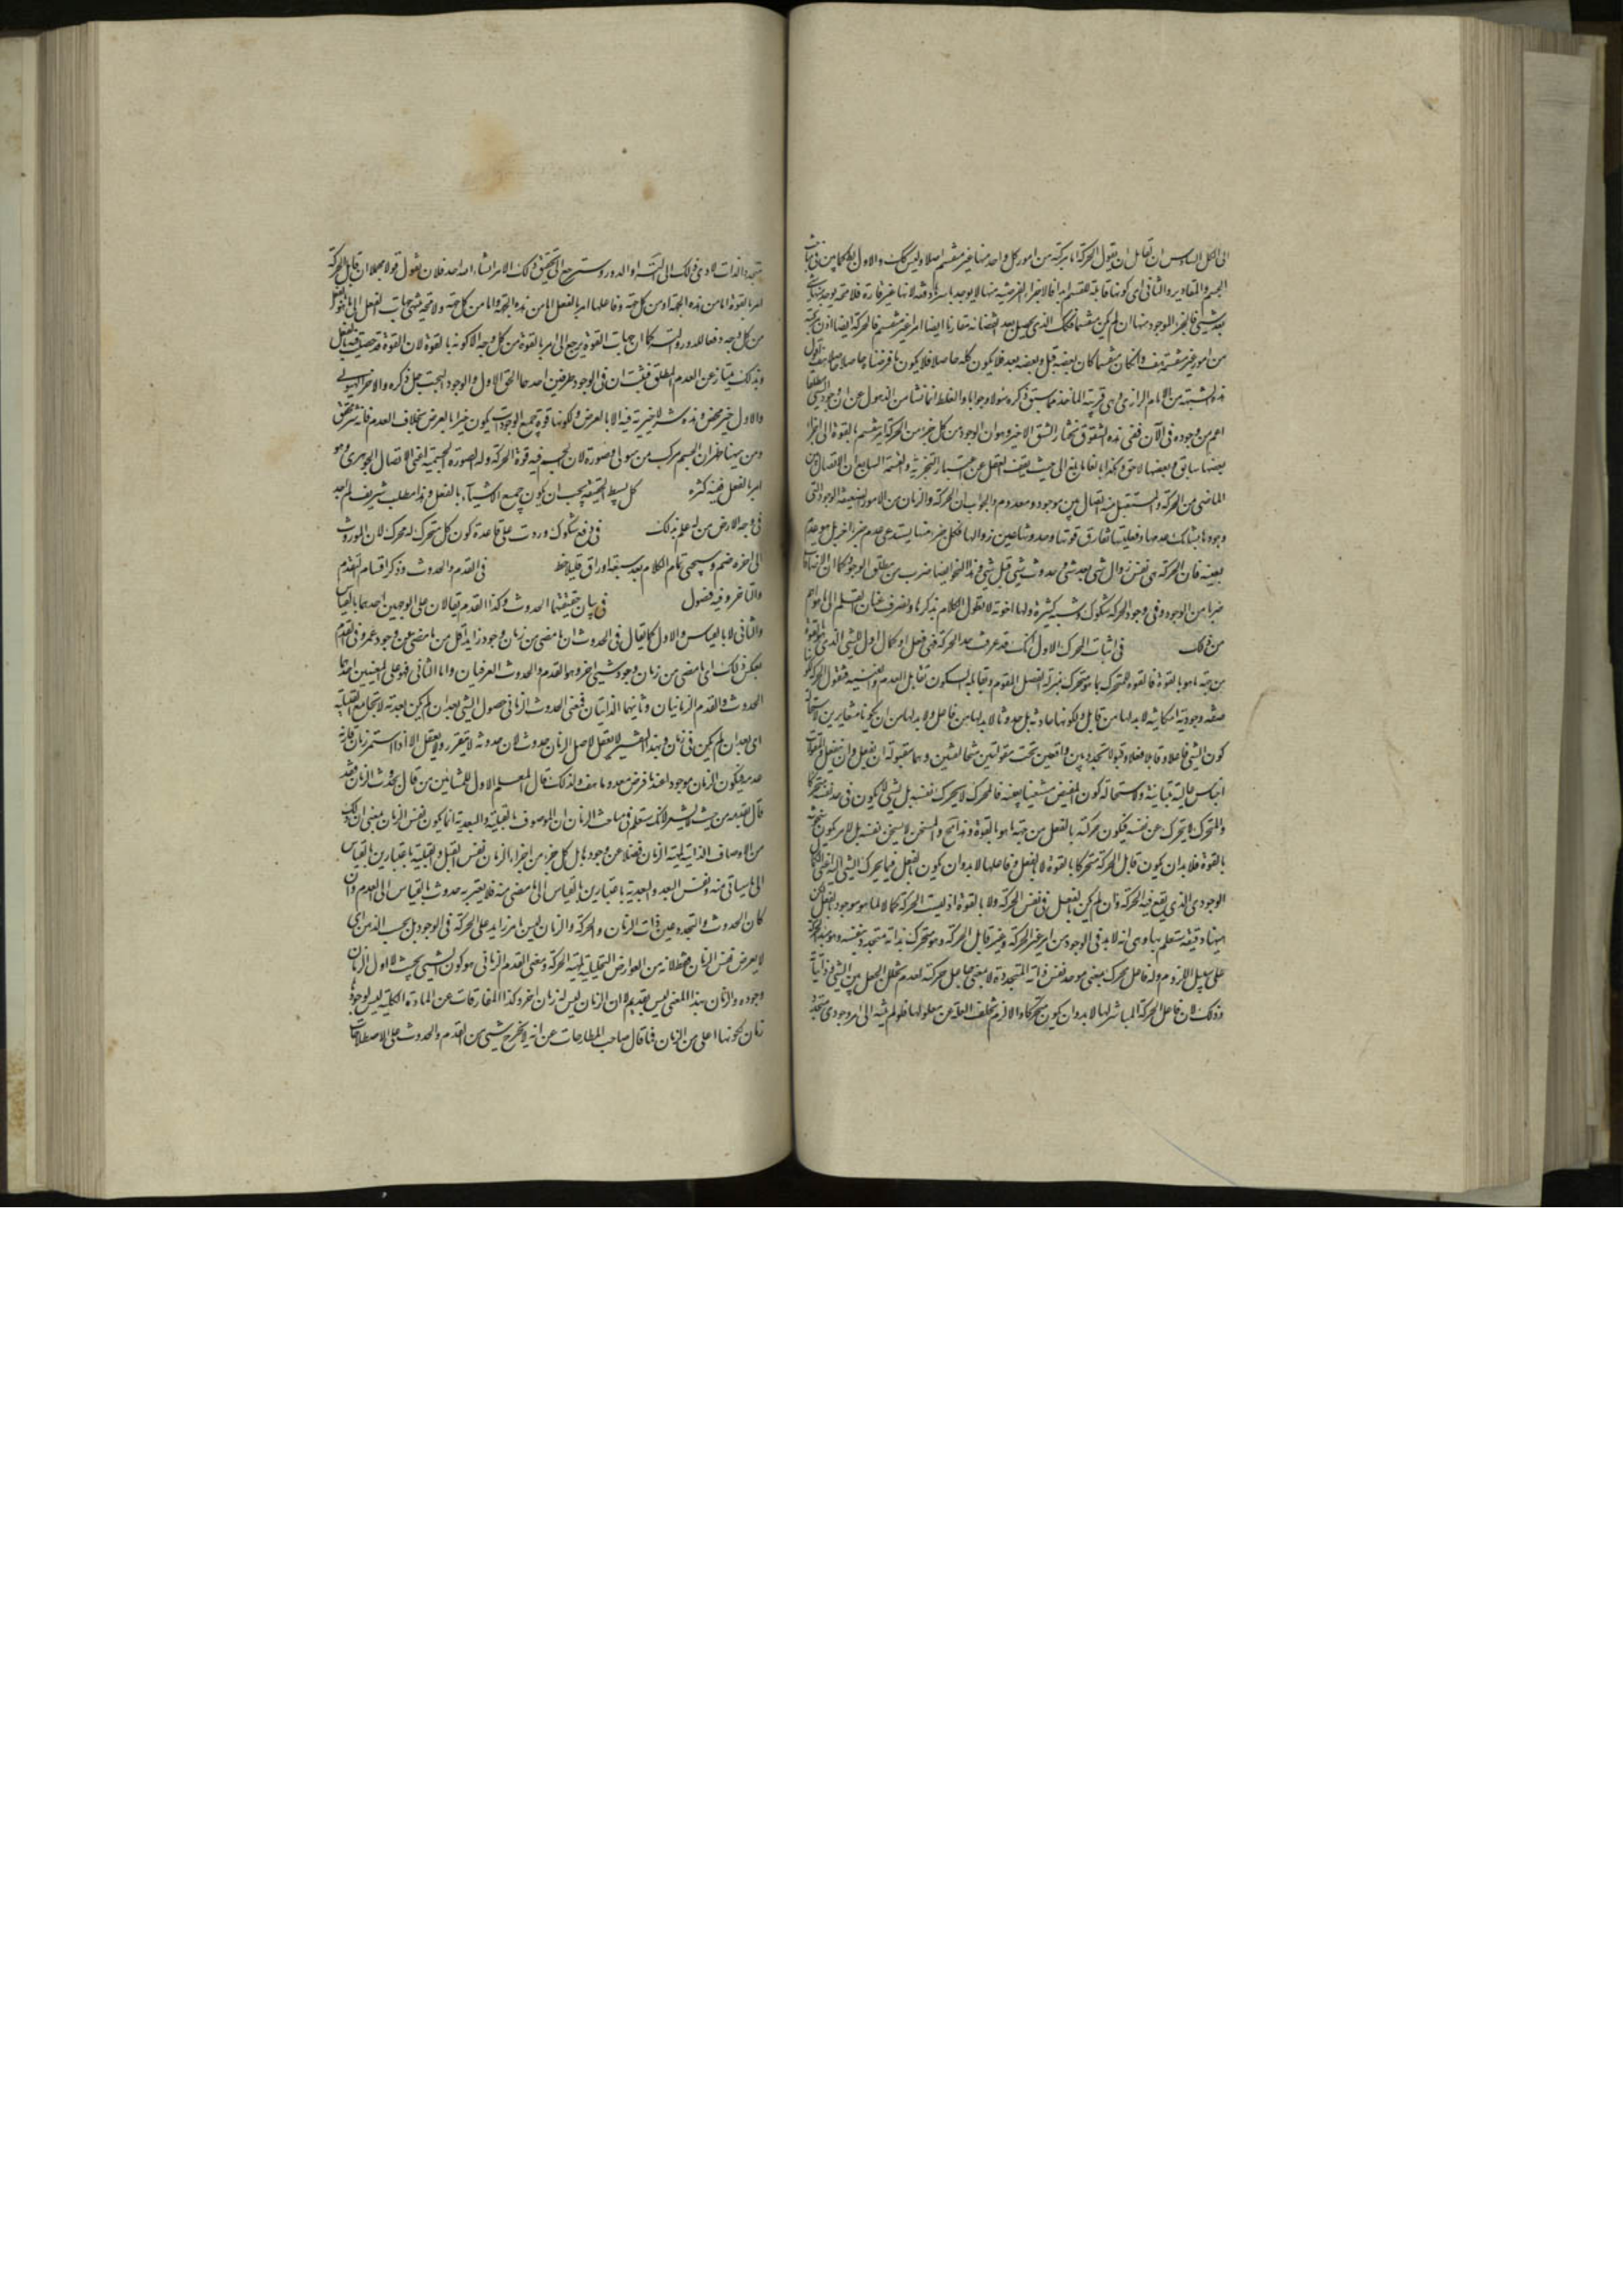 الى الكل السادس ان لقائل ان يقول الحركة اما مركبة من امور كل واحد منها غير منقسم اصلا وليس كك والاول بط كما بين فى مباحث
الجسم والمقادير والثانى اى كونها قابلة للقسمة ابدا فالاجزاء الفرضية منها لا يوجد دفعة لانها غير قارة فلا محة يوجد منها شئ
بعد شئ فالجزء الموجود منها ان لم يكن منقسما فكك الذى يحصل بعد انقضائه مقارنا ايضا امرا غير منقسم فالحركة ايضا اذن مركبة
من امور غير منقسمة هف وان كان منقسما كان بعضه قبل وبعضه بعد فلا يكون كله حاصلا فلا يكون ما فرضناه حاصلا حاصلا هف اقول
هذه الشبهة من الامام الرازى وهى قريبة الماخذ مما سبق ذكره سؤلا وجوابا والغلط انما نشأ من الذهول عن ان وجود الشئ مطلقا
اعم من وجوده فى الآن ففى هذه الشقوق نختار الشق الاخير وهو ان الموجود من كل جزء من الحركة امر منقسم بالقوة الى اجزاء
بعضها سابق وبعضها لاحق وهكذا بالغا ما بلغ الى حيث يقف العقل عن اعتبار التجزية والقسمة السابع ان الاتصال بين
الماضى من الحركة والمستقبل منه اتصال بين موجود ومعدوم والجواب ان الحركة والزمان من الامور الضعيفة الوجود التى
وجودها يشابك عدمها وفعليتها تقارن قوتها وحدوثها عين زوالها فكل جزء منها يستدعى عدم جزء اخر بل هو عدمه
بعينه فان الحركة هى نفس زوال شئ بعد شئ وحدوث شئ قبل شئ وهذا النحو ايضا ضرب من مطلق الوجود كما ان الاضافات
ضربا من الوجود وفى وجود الحركة شكوك وشبه كثيرة ولها اجوبة لا نطول الكلام بذكرها ونصرف عنان القلم الى ما هو اهم
من ذلك فى اثبات المحرك الاول انك قد عرفت حد الحركة فهى فعل او كمال اول للشئ الذى هو بالقوة
من جهة ما هو بالقوة فالقوة للمتحرك بما هو متحرك بمنزلة الفصل المقوم وتقابله السكون تقابل العدم والقنية فنقول الحركة لكونها
صفة وجودية امكانية لا بد لها من قابل ولكونها حادثة بل حدوثا لا بد لها من فاعل ولا بد لها من ان يكونا متغايرين لاستحالة
كون الشئ فاعلا وقابلا فعلا وقبولا متجددين واقعين تحت مقولتين متخالفتين وهما مقولة ان يفعل وان ينفعل والمقولات
اجناس عالية متباينة ولاستحالة كون المفيض مستفيضا بعينه فالمحرك لا يحرك نفسه بل لشئ لا يكون فى حد نفسه متحركا
والمتحرك لا يتحرك عن نفسه فيكون حركته بالفعل من جهة ما هو بالقوة وهذا مح والمسخن لا يسخن نفسه بل لامر يكون سخونته
بالقوة فلا بد ان يكون قابل الحركة متحركا بالقوة لا بالفعل وفاعلها لا بد وان يكون بالفعل فيما يحرك الشئ اليه اعنى الكمال
الوجودى الذى يقع فيه الحركة وان لم يكن بالفعل فى نفس الحركة ولا بالقوة اذ ليست الحركة كمالا لما هو موجود بالفعل لكن
ههنا دقيقة ستعلم بها وهى انه لا بد فى الوجود من امر غير الحركة وغير قابل الحركة وهو متحرك بذاته متجدد بنفسه وهو مبدء الحركة
على سبيل اللزوم وله فاعل محرك بمعنى موجد نفس ذاته المتجددة لا بمعنى جاعل حركته لعدم تخلل الجعل بين الشئ وذاتياته
وذلك لان فاعل الحركة المباشر لها لا بد وان يكون متحركا والا لزم تخلف العلة عن معلولها فلو لم ينته الى امر وجودى متجدد
متجدد الذات لادى ذلك الى التس او الدور وسنرجع الى تحقيق ذلك الامر انشاء الله احد فلان نقول قولا مجملا ان قابل الحركة
امر بالقوة اما من هذه الجهة او من كل جهة وفاعلها امر بالفعل اما من هذه الجهة واما من كل جهة ولا محة ينتهى جهات الفعل الى ما هو بالفعل
من كل وجه دفعا للدور والتس كما ان جهات القوة يرجع الى امر بالقوة من كل وجه الا كونه بالقوة لان القوة قد حصلت فيه بالفعل
وبذلك يمتاز عن العدم المطلق فثبت ان فى الوجود طرفين احدهما الحق الاول والوجود البحت جل ذكره والاخر الهيولى
والاول خير محض وهذه شر لا خيرية فيه الا بالعرض ولكونها قوة جميع الموجودات يكون خيرا بالعرض بخلاف العدم فانه شر محض
ومن هيهنا ظهر ان الجسم مركب من هيولى وصورة لان الجسم فيه قوة الحركة وله الصورة الجسمية اعنى الاتصال الجوهرى وهو
امر بالفعل ففيه كثرة كل بسيط الحقيقة يجب ان يكون جميع الاشياء بالفعل وهذا مطلب شريف لم اجد
فى وجه الارض من له علم بذلك فى دفع شكوك وردت على قاعدة كون كل متحرك له محرك لان الموروث
الى اخره ضم وسيجئ تمام الكلام بعد سبعة اوراق قليلا خط فى القدم والحدوث وذكر اقسام التقدم
والتاخر وفيه فصول فى بيان حقيقتهما الحدوث وكذا القدم يقالان على الوجهين احدهما بالقياس
والثانى لا بالقياس والاول كما يقال فى الحدوث ان ما مضى من زمان وجود زيد اقل من ما مضى من وجود عمرو فى القدم
بعكس ذلك اى ما مضى من زمان وجود شئ اخر وهما القدم والحدوث العرفيان واما الثانى فهو على المعنيين احدهما
الحدوث والقدم الزمانيان وثانيهما الذاتيان فمعنى الحدوث الزمانى حصول الشئ بعد ان لم يكن بعدية لا تجامع القبلية
اى بعد ان لم يكن فى زمان وبهذا التفسير لا يعقل لاصل الزمان حدوث لان حدوثه لا يتقرر ولا يعقل الا اذا استمر زمان قارنه
عدمه فيكون الزمان موجودا عند ما فرض معدوما هف ولذلك قال المعلم الاول للمشائين من قال بحدوث الزمان فقد
قال بقدمه من حيث لا يشعر لانك ستعلم فى مباحث الزمان ان الموصوف بالقبلية والبعدية انما يكون نفس الزمان بمعنى ان ذلك
من الاوصاف الذاتية لمهية الزمان فضلا عن وجودها بل كل جزء من اجزاء الزمان نفس القبل والقبلية باعتبارين بالقياس
الى ما سياتى منه ونفس البعد والبعدية باعتبارين بالقياس الى ما مضى منه فلا يعتريه حدوث بالقياس الى العدم وان
كان الحدوث والتجدد عين ذات الزمان والحركة والزمان ليس امرا زايدا على الحركة فى الوجود بل بحسب الذهن اى
لا يعرض نفس الزمان فقط لانه من العوارض التحليلية لمهية الحركة ومعنى القدم الزمانى هو كون الشئ بحيث لا اول لزمان
وجوده والزمان بهذا المعنى ليس بقديم لان الزمان ليس له زمان اخر وكذا المفارقات عن المادة بالكلية ليس لوجودها
زمان لكونها اعلى من الزمان فما قال صاحب المطارحات من انه لا يخرج شئ من القدم والحدوث على الاصطلاحات